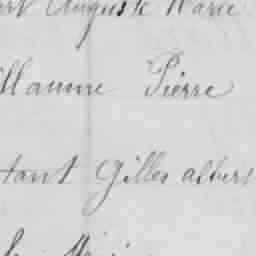 Auguste Marie
llaume Pierre
tant Gilles albers